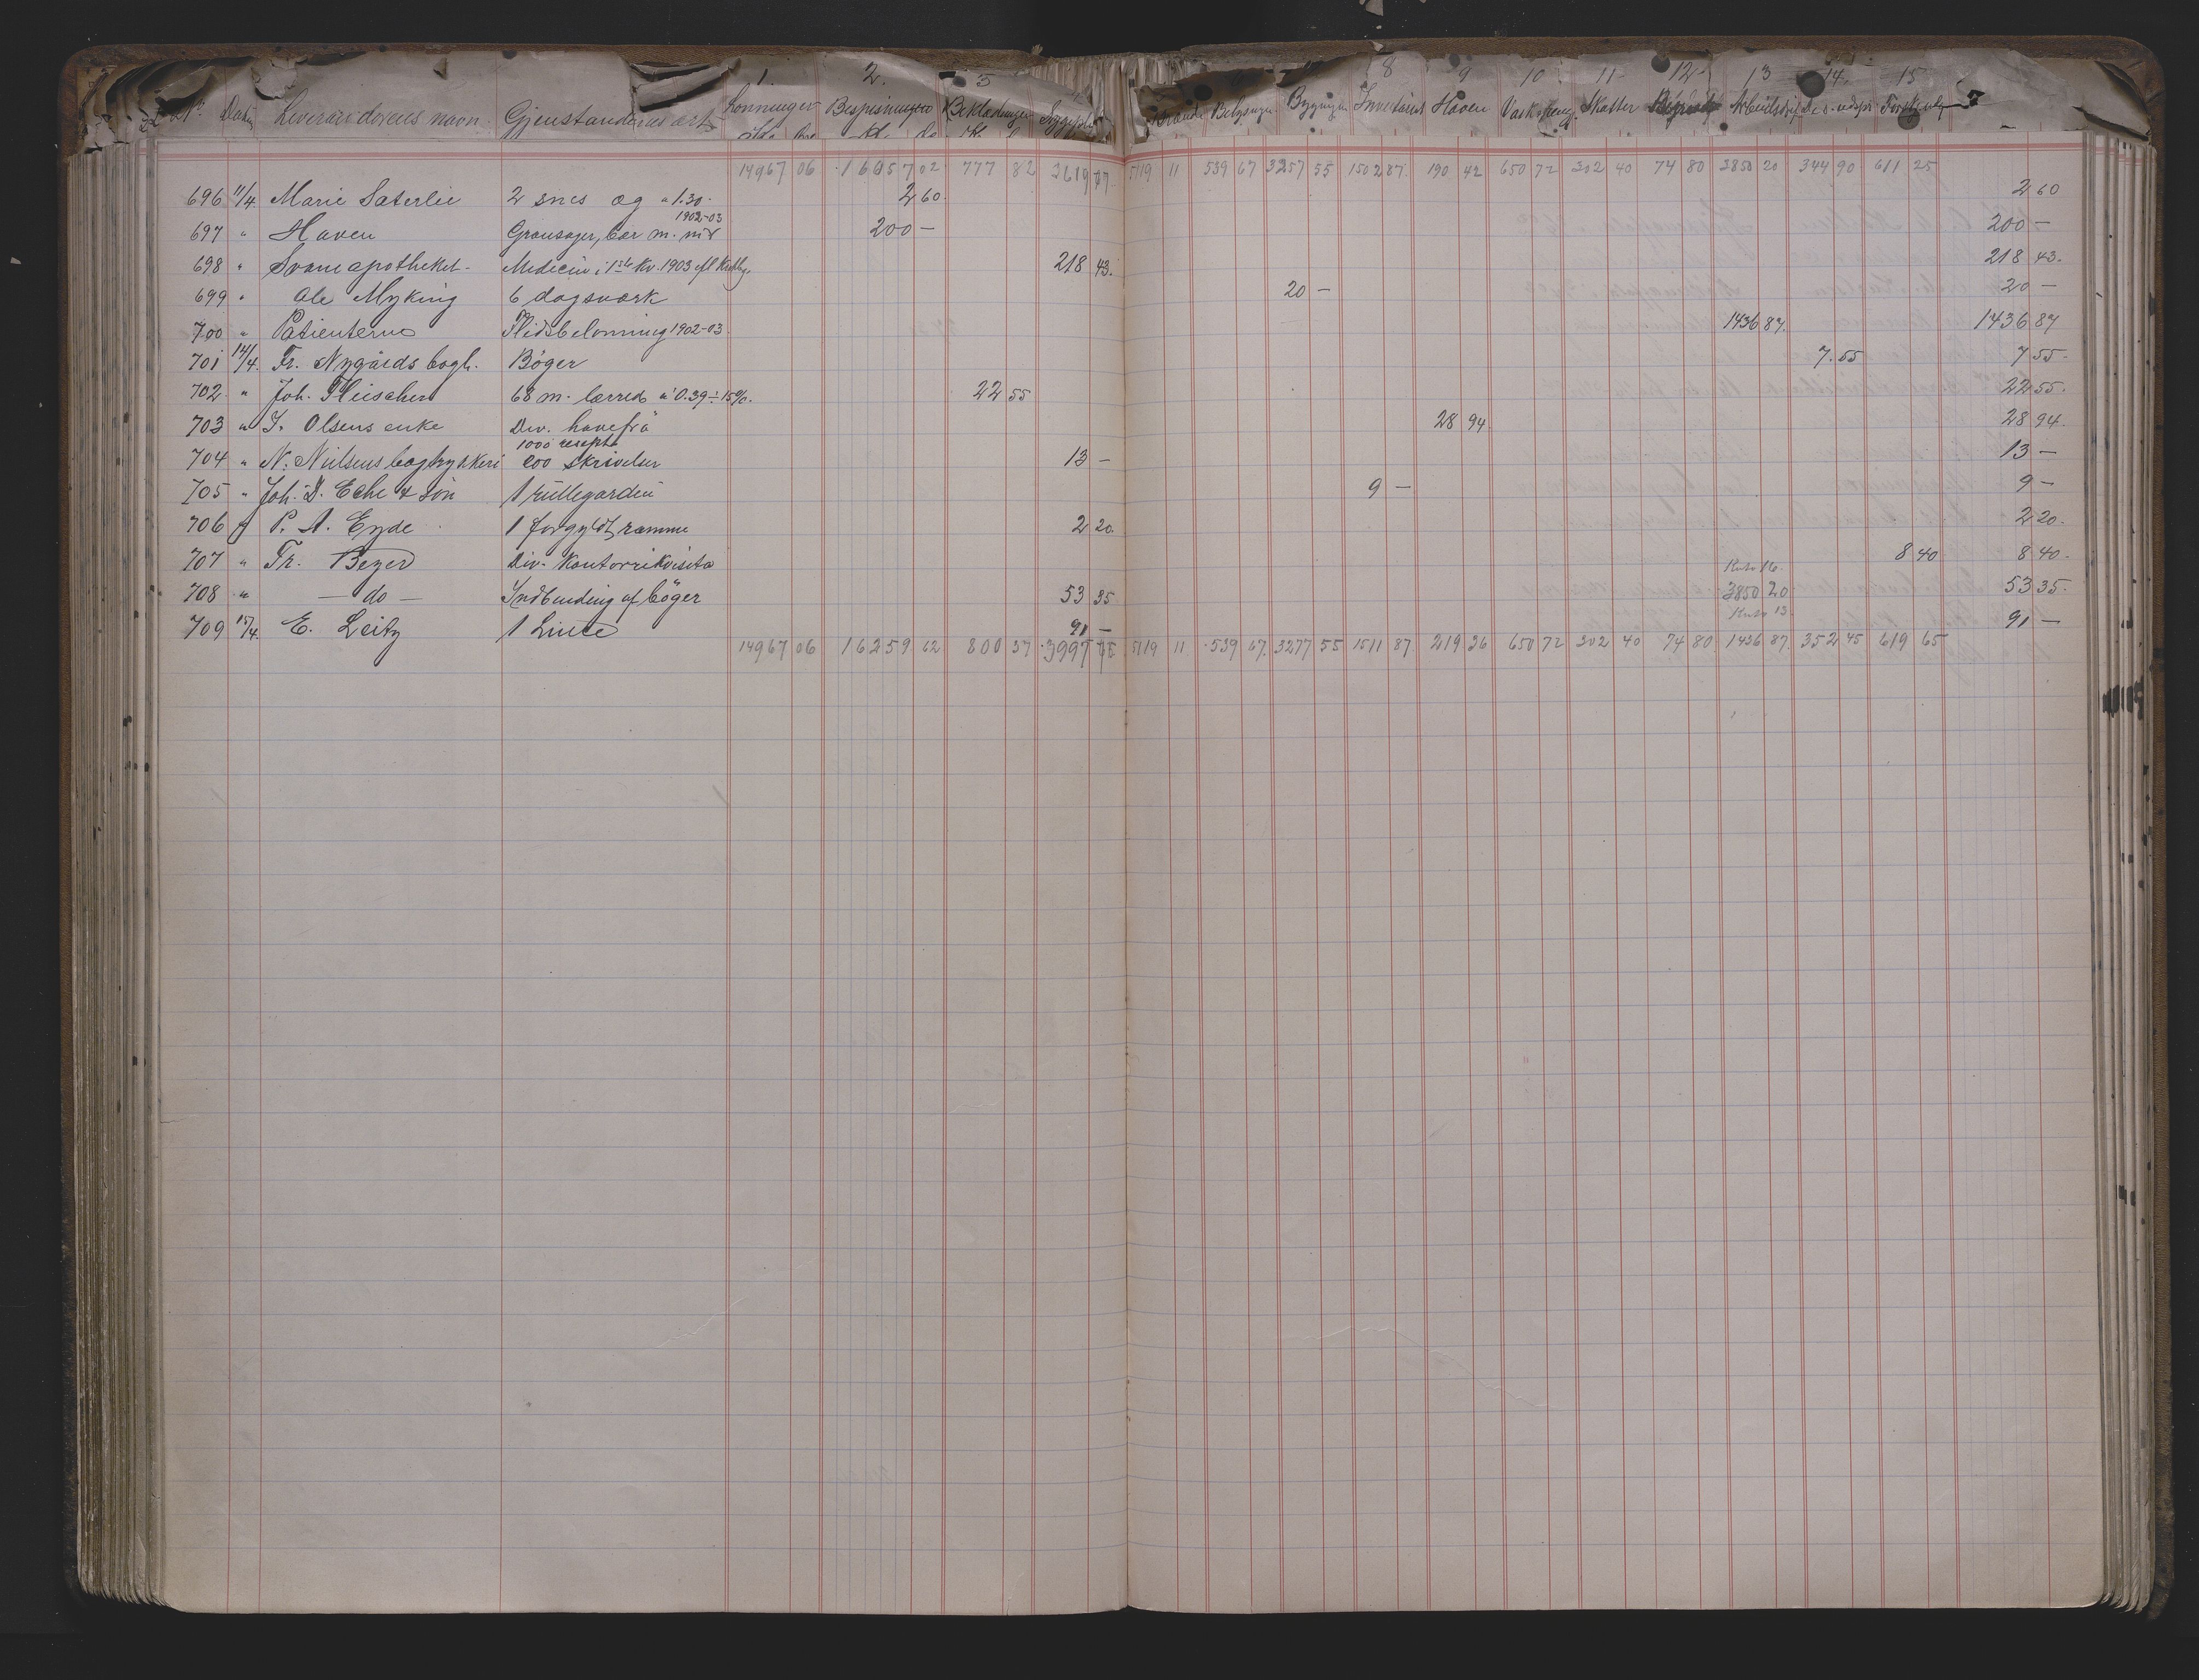 1. 2. 3 8 9 10 11 12 13 14. 15
No Datum Leverandörens navn. Gjenstandenes art Lönninger Bespisningen Beklædningen Sygepleie Brænde Belysngen Bygningen Inventariet Haven Vask & reng. Skatter Arbeidsdrift
14967 06 16057 02 777 82 3619 77 5119 11 539 67 3257 55 1502 87. 190 42 650 72 302 40 74 80 3850 20 344 90 611 25
696 11/4 Marie Sæterlie 2 snes æg a 1.30. 2 60. 2 60
1902-03
697 " Haven Grønsager, bær m. m 200 — 200 —
698 " Svaneapotheket. Medecin i 1ste Kv. 1903 218 43. 218 43.
699 " Ole Myking 6 dagsværk 20 — 20 —
700 " Patienterne Flidsbelönning 1902-03. 1436 87. 1436 87
701 14/4. Fr. Nygårds bogh. Böger 7. 55 7 55.
702. " Joh. Fleischer 68 m. lærred a 0.39 ÷ 15%. 22 55 22 55.
703 " J. Olsens enke Div. havefrö 28 94. 28 94.
1000 resepter
704 " N. Nilsens bogtrykkeri 200 skrivelser 13 — 13 —
705 " Joh. D. Behr & sön 1 rullegardin 9 — 9 —
706 " P. A. Eyde 1 forgyldt ramme 2 20. 2 20.
707 " Fr. Beyer Div. kontorrikvisita 8 40 8 40.
Konto 16.
708 " — do — Indbinding af böger 53 35 3850 20 53 35.
Konto 13.
709 15/4. E. Leitz 1 Linse 91 — 91 —
14967 06 16259 62 800 37 3997 75 5119 11 539 67. 3277 55 1511 87. 219 36 650 72 302 40 74 80 1436 87. 352 45 619 65